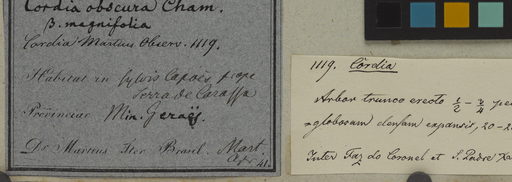 Cordia obscura Cham.
β. magnifolia
Cordia Martius Observ. 1119.
Habitat in sylvis Capoës, prope
Serra de Caraffa
Provinciae Min. Geraës.
Dr. Martius Iter Brasil. Mart.
41.
1119. Cordia
Arbor trunco erecto 1/2 - 3/4 pe
globosam densam expansis, 20-2
Inter Faz do Coronel et S. Padre Xa